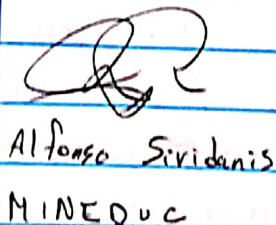 Alfonso Siridanis
MINEDUC